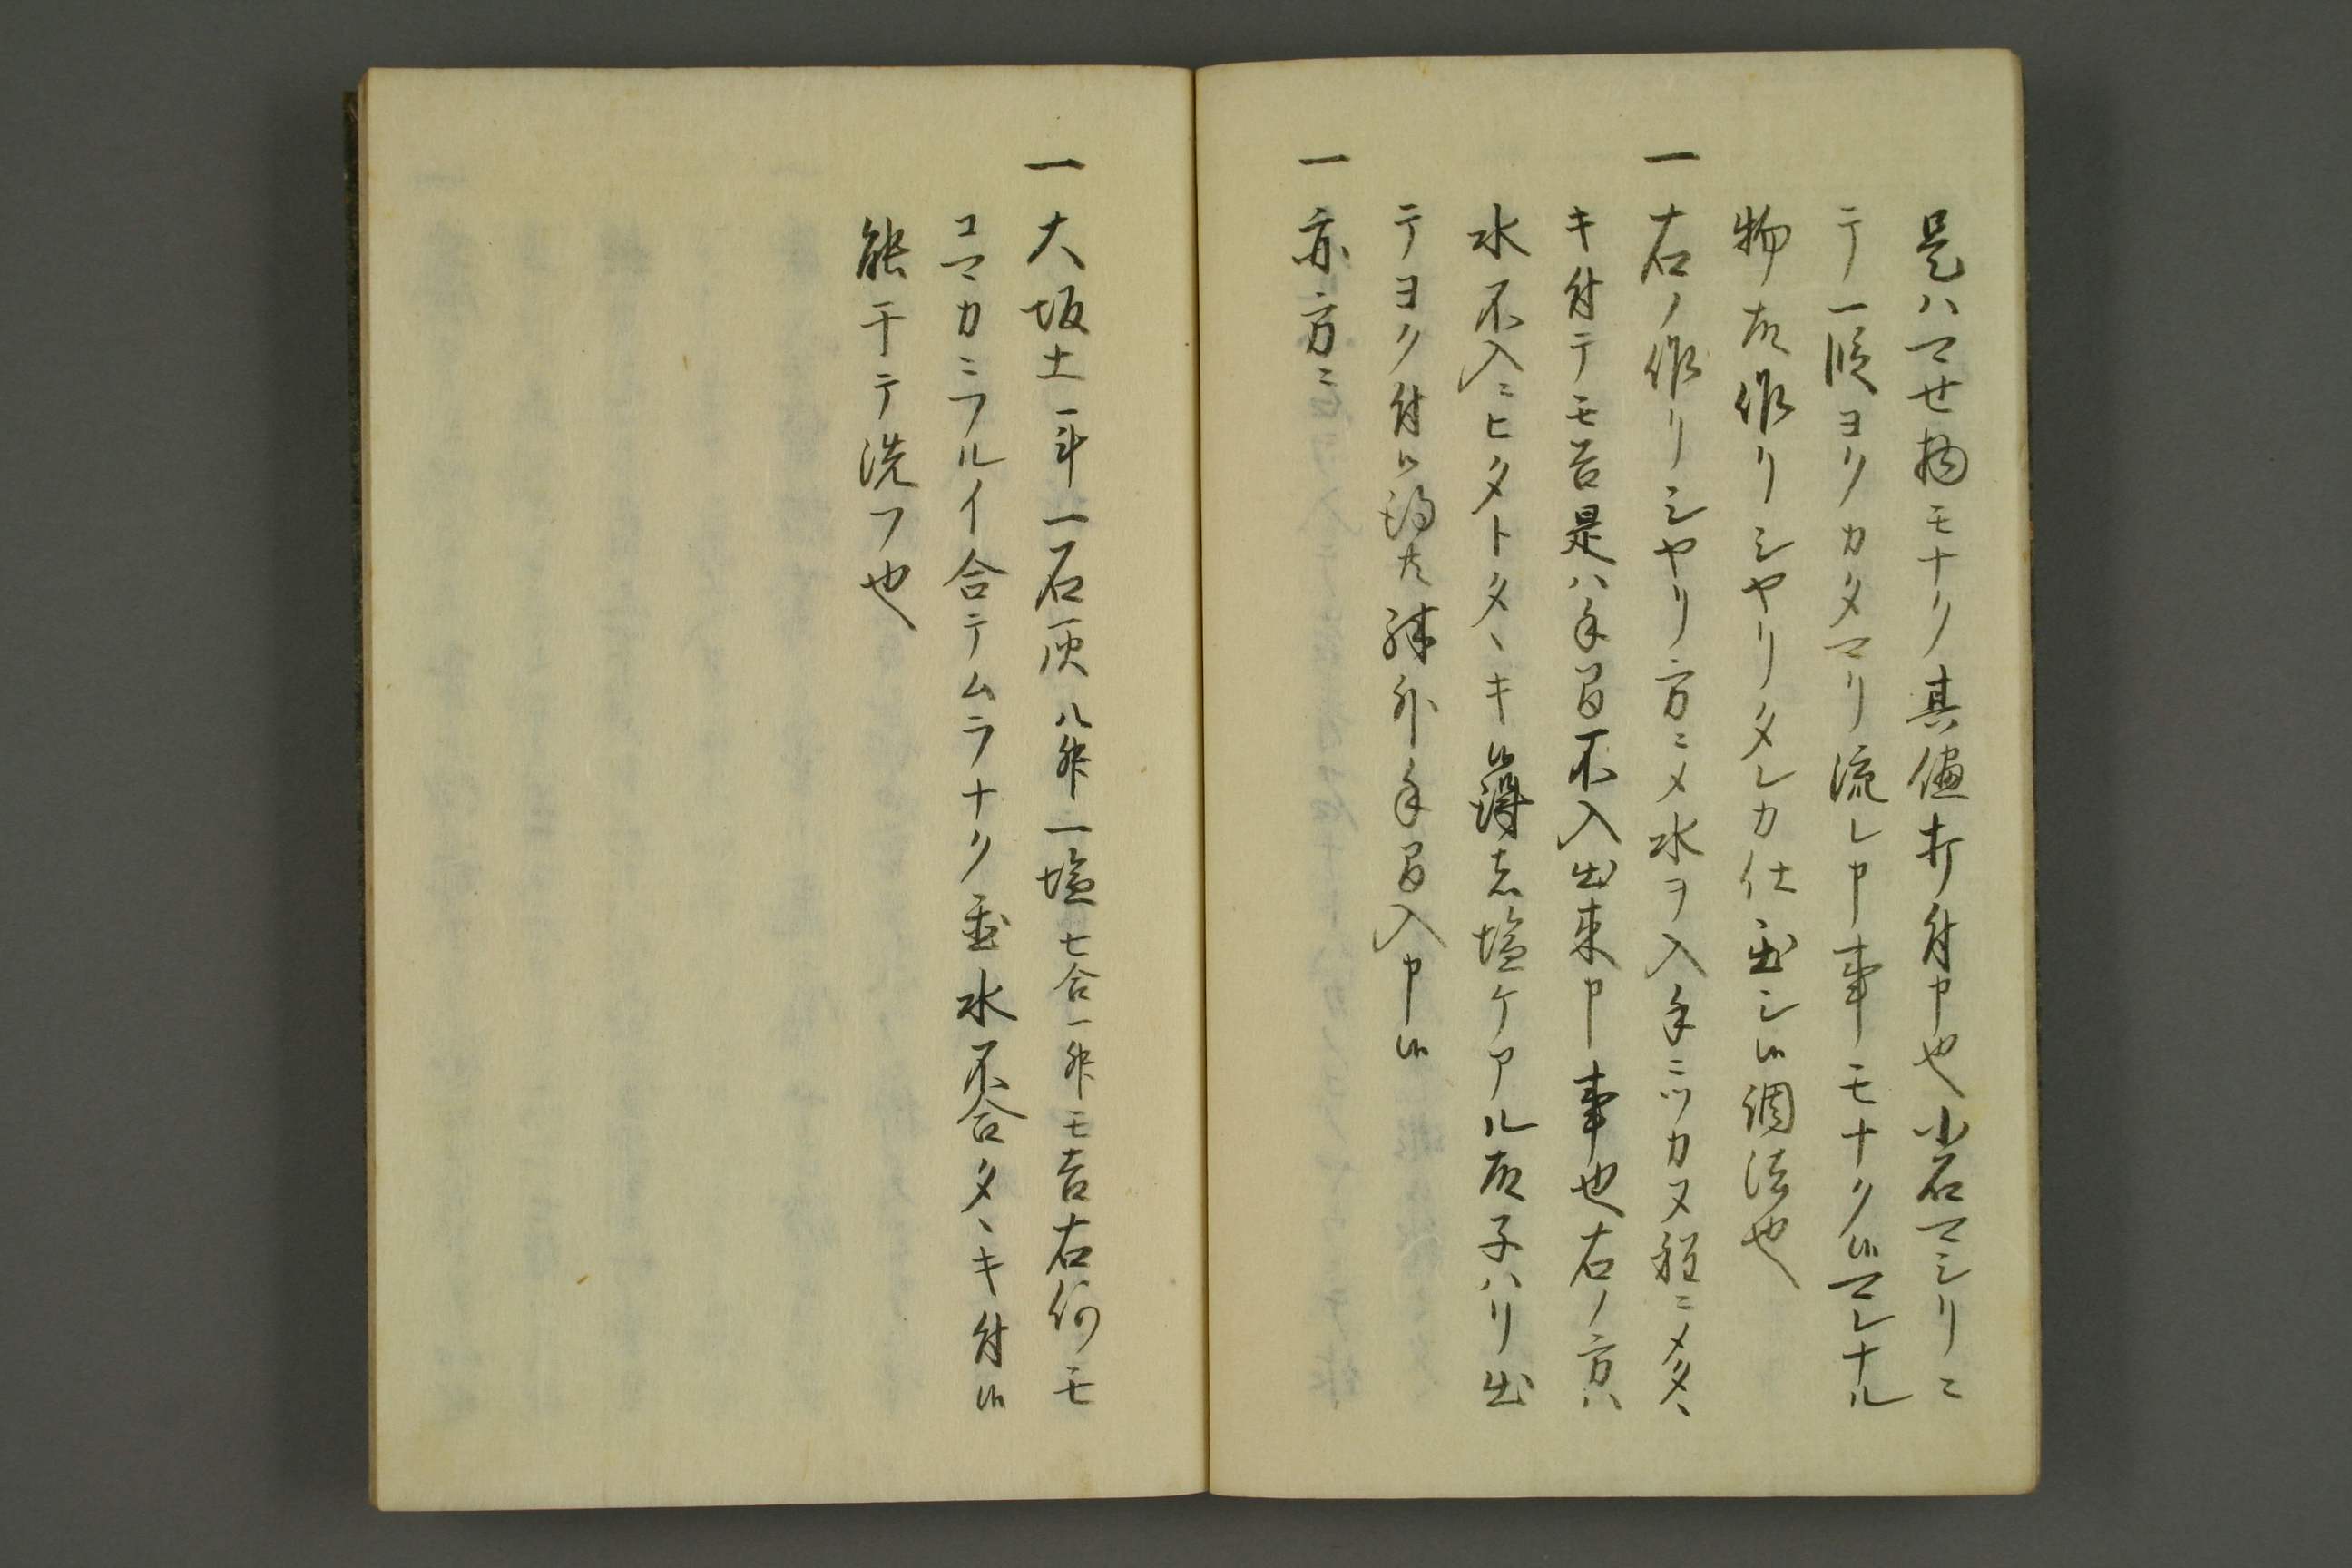 是ハマセ物モナク其儘打付申也小石マシリニ
テ一段ヨクカタマリ流レ申事モナク候マレナル
物故作リシヤリタレカ仕出シ候調法也
一 右ノ作リシヤリ方ニメ水ヲ入手ニツカヌ程ニメタヽ
キ付テモ吉是ハ手間不入出来申事也右ノ方ハ
水不入ニヒタトタヽキ候得共塩ケアル故子ハリ出
テヨク付候得共殊外手間入申候
一 亦方ニ
一 大坂土一斗一石灰八升一塩七合一升モ吉右何モ
コマカニフルイ合テムラナク並水不合タヽキ付候
能干テ洗フ也